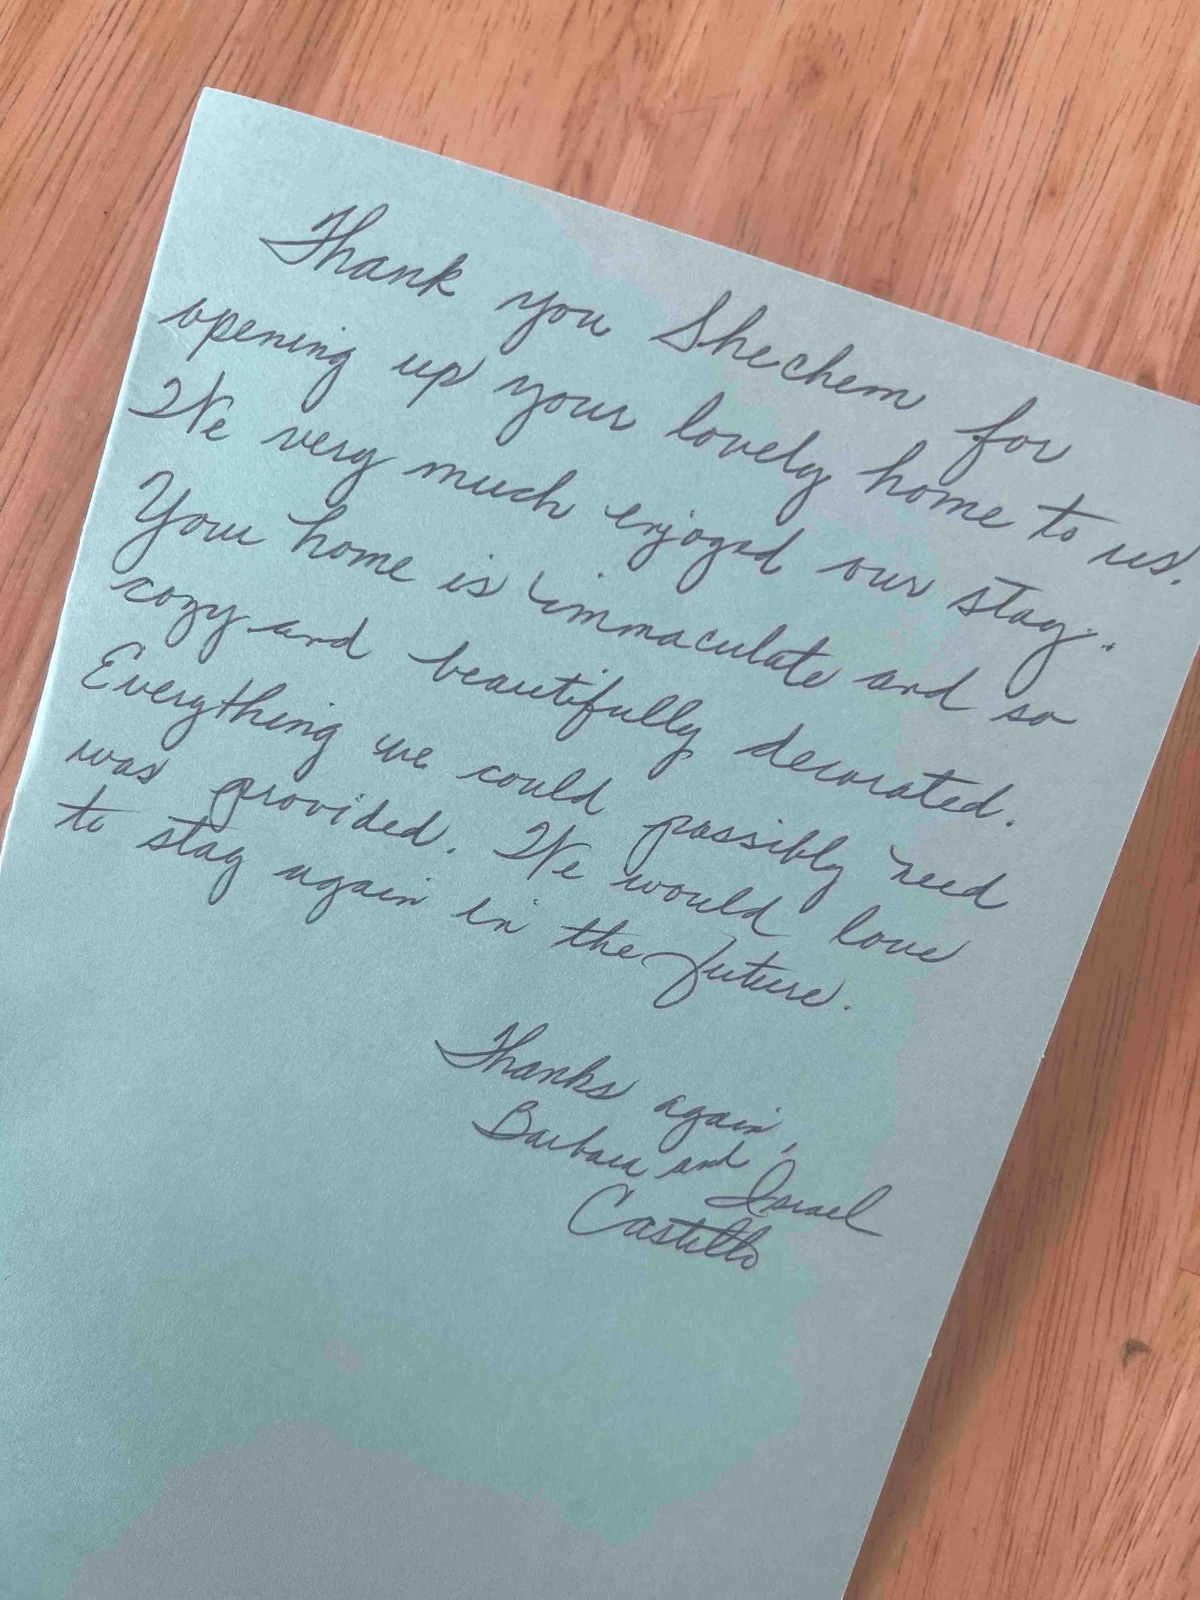 Thank you Shechem for
opening up your lovely home to us.
We very much enjoyed our stay.
Your home is immaculate and so
cozy and beautifully decorated.
Everything we could possibly need
was provided. We would love
to stay again in the future.
Thanks again,
Barbara and Israel
Castillo